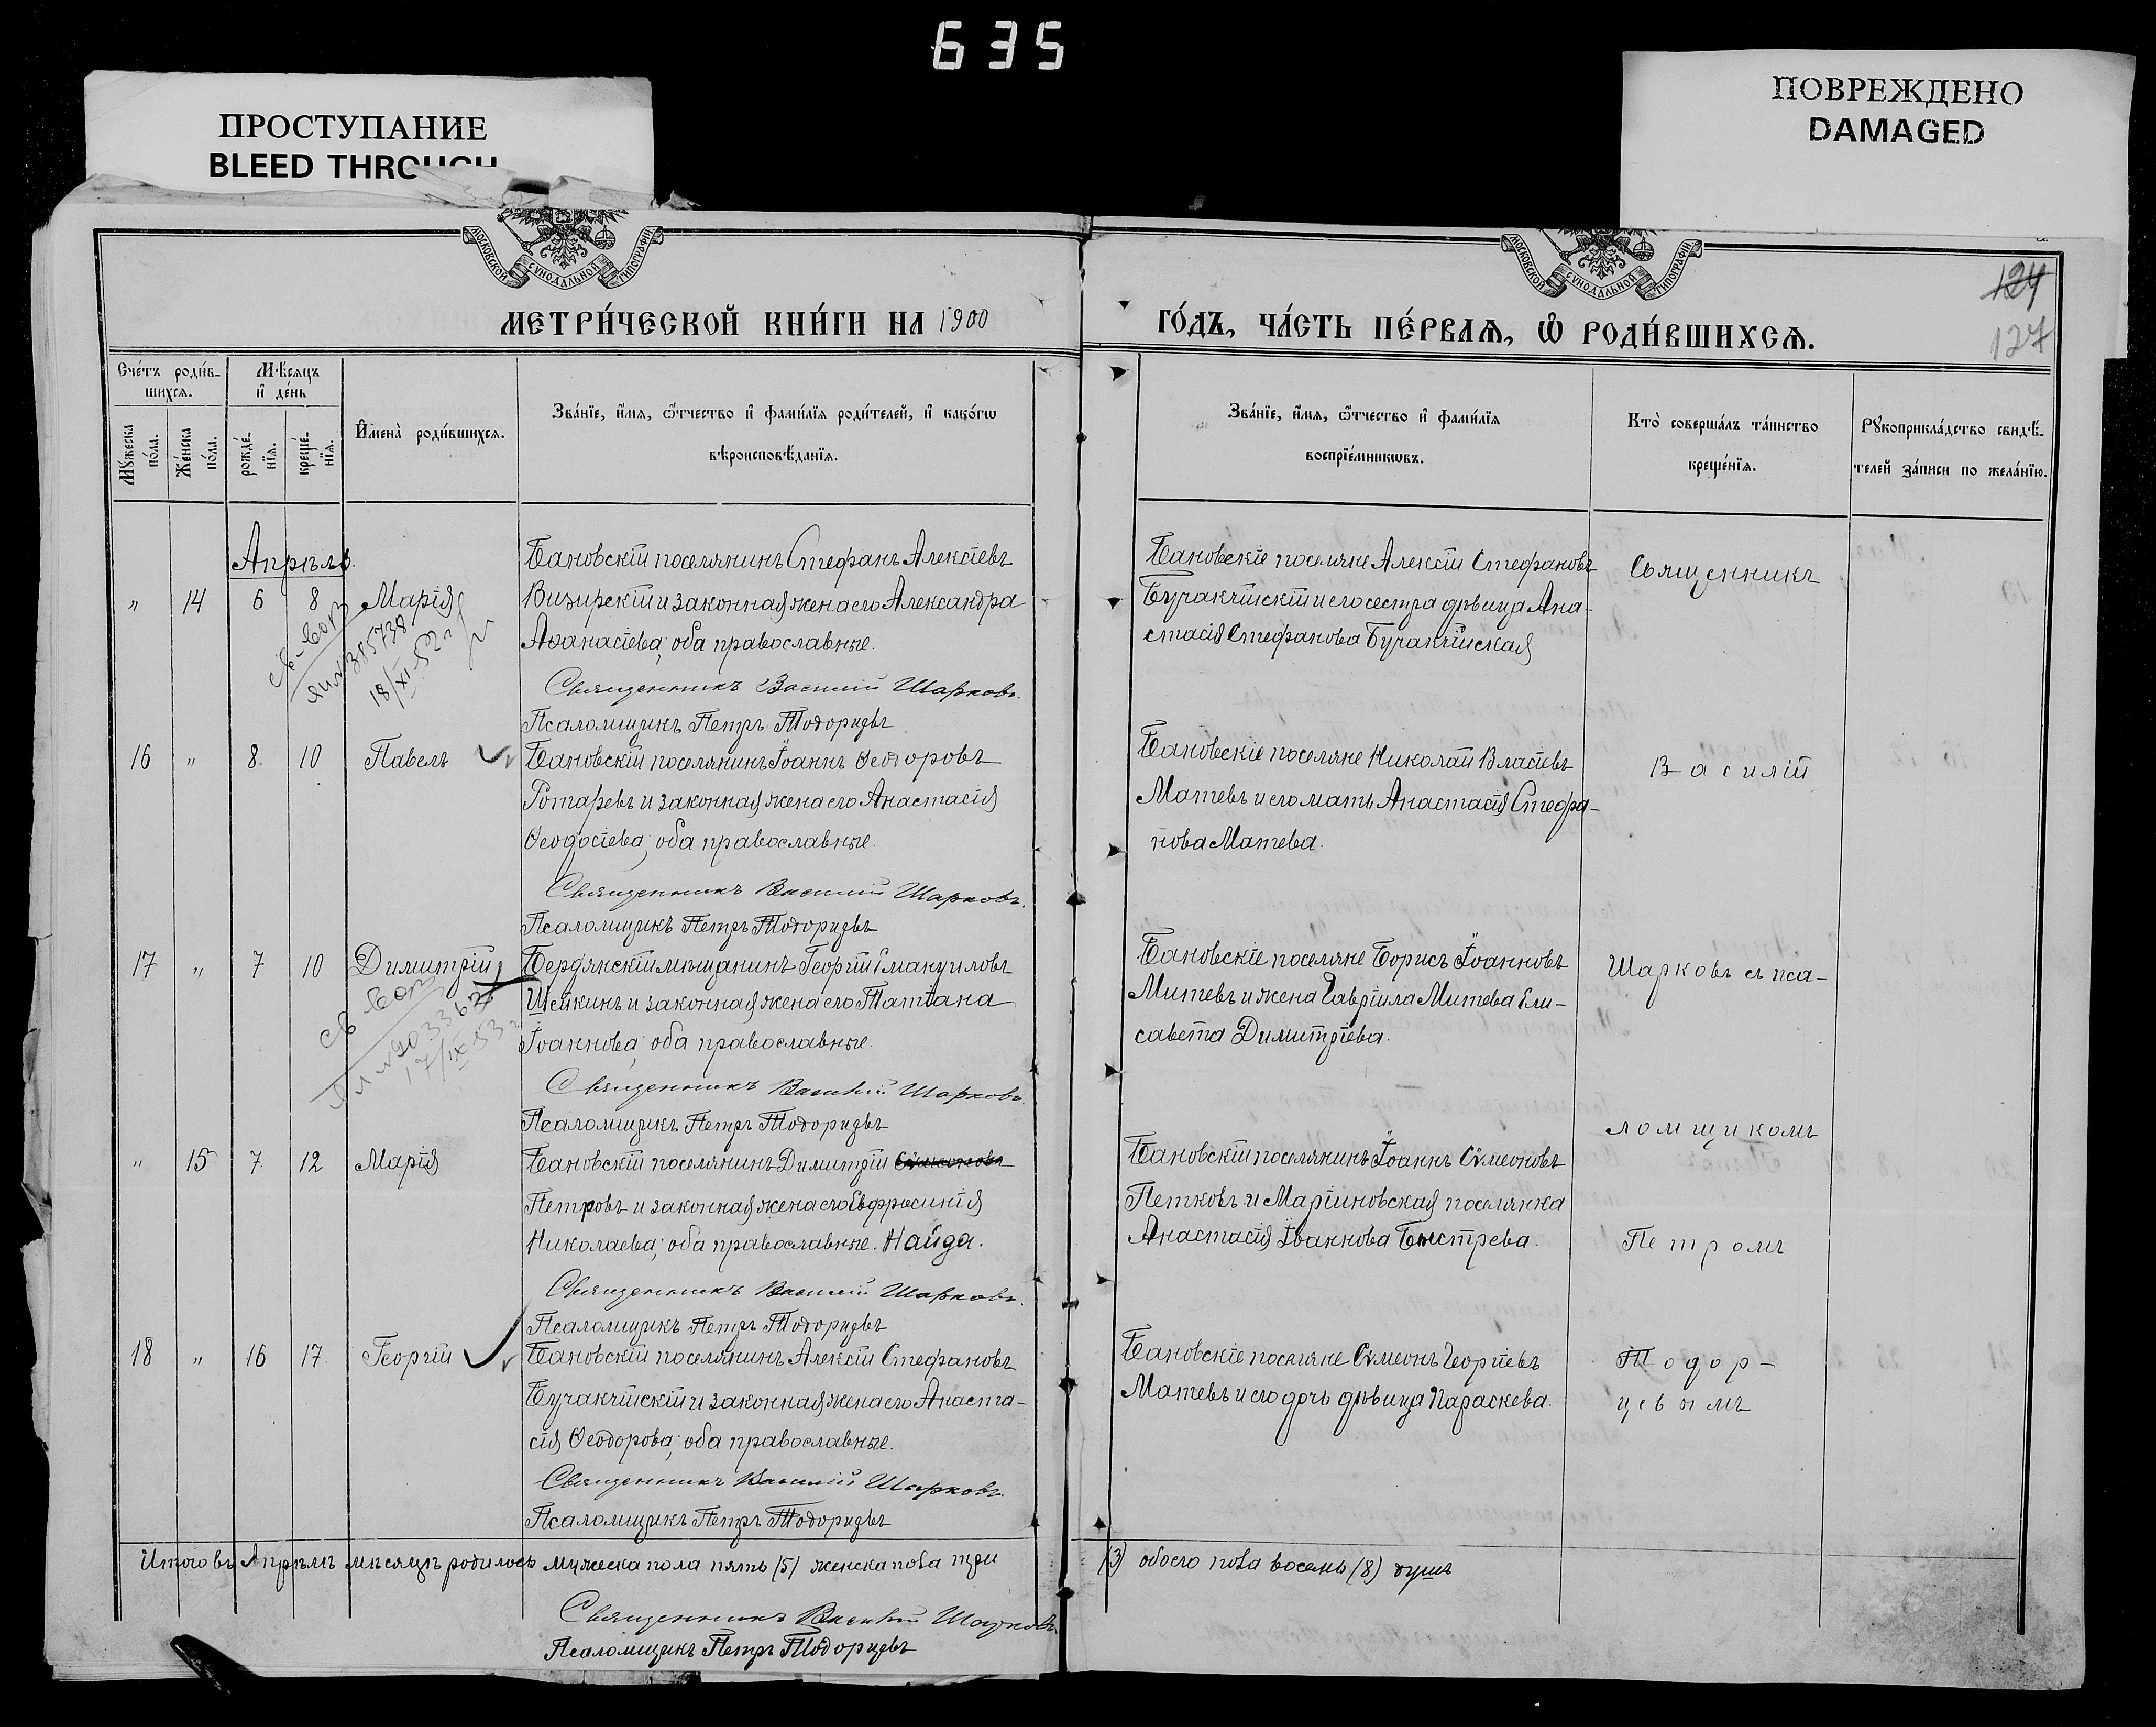 635
ПРОСТУПАНИЕ
BLEED THROUGH
ПОВРЕЖДЕНО
DAMAGED
МОСКОВСКОЙ СѴНОДАЛЬНОЙ ТИПОГРАФІИ
МОСКОВСКОЙ СѴНОДАЛЬНОЙ ТИПОГРАФІИ
124
127
МЕТРИ́ЧЕСКОЙ КНИ́ГИ НА 1900
ГО́ДЪ, ЧА́СТЬ ПЕ́РВАѦ, Ѽ РОДИ́ВШИХСѦ.
Сче́тъ роди́в-
шихсѧ.
Мѣ́сѧцъ
и҆ де́нь
Мꙋ́жеска по́ла.
Же́нска по́ла.
рожде́-
нїѧ.
креще́-
нїѧ.
И҆мена̀ роди́вшихсѧ.
Зва́нїе, и҆́мѧ, ѻ҆́тчество и҆ фами́лїѧ роди́телей, и҆ како́гѡ
вѣроисповѣ́данїѧ.
Зва́нїе, и҆́мѧ, ѻ҆́тчество и҆ фами́лїѧ
воспрїе́мникѡвъ.
Кто̀ соверша́лъ та́инство
креще́нїѧ.
Рꙋкоприкла́дство свидѣ́-
телей за́писи по жела́нїю.
Апрѣль.
" 14 6 8 Марія
Бановскій поселянинъ Стефанъ Алексіевъ
Визирскій и законная жена его Александра
Аѳанасіева; оба православные.
Священникъ Василій Шарковъ.
Псаломщикъ Петръ Тодорцевъ
385738
18/XI-52 г
Бановскіе поселяне Алексій Стефановъ
Бучакчійскій и его сестра дѣвица Ана-
стасія Стефанова Бучакчійская
Священникъ
16 " 8 10 Павелъ
Бановскій поселянинъ Іоаннъ Ѳеодоровъ
Ротаревъ и законная жена его Анастасія
Ѳеодосіева; оба православные.
Священникъ Василій Шарковъ.
Псаломщикъ Петръ Тодорцевъ
Бановскіе поселяне Николай Власіевъ
Матевъ и его мать Анастасія Стефа-
нова Матева.
Василій
17 " 7 10 Димитрій
Бердянскій мѣщанинъ Георгій Емануиловъ
Шейкинъ и законная жена его Татіана
Іоаннова; оба православные.
Священникъ Василій Шарковъ.
Псаломщикъ Петръ Тодорцевъ
17/IX-53 г
Бановскіе поселяне Борисъ Іоанновъ
Митевъ и жена Гавріила Митева Ели-
савета Димитріева.
Шарковъ съ пса-
ломщикомъ
" 15 7 12 Марія
Бановскій поселянинъ Димитрій Сѵмеоновъ
Петровъ и законная жена его Евфросинія
Николаева; оба православные. Найда.
Священникъ Василій Шарковъ.
Псаломщикъ Петръ Тодорцевъ
Бановскій поселянинъ Іоаннъ Сѵмеоновъ
Петковъ и Маріиновская поселянка
Анастасія Іоаннова Быстрева.
Петромъ
18 " 16 17 Георгій
Бановскій поселянинъ Алексій Стефановъ
Бучакчійскій и законная жена его Анаста-
сія Ѳеодорова; оба православные.
Священникъ Василій Шарковъ.
Псаломщикъ Петръ Тодорцевъ
Бановскіе поселяне Сѵмеонъ Георгіевъ
Матевъ и его дочь дѣвица Параскева.
Тодор-
цевымъ
Итого въ Апрѣлѣ мѣсяцѣ родилось мужеска пола пять (5) женска пола три
(3) обоего пола восемь (8) душъ
Священникъ Василій Шарковъ.
Псаломщикъ Петръ Тодорцевъ